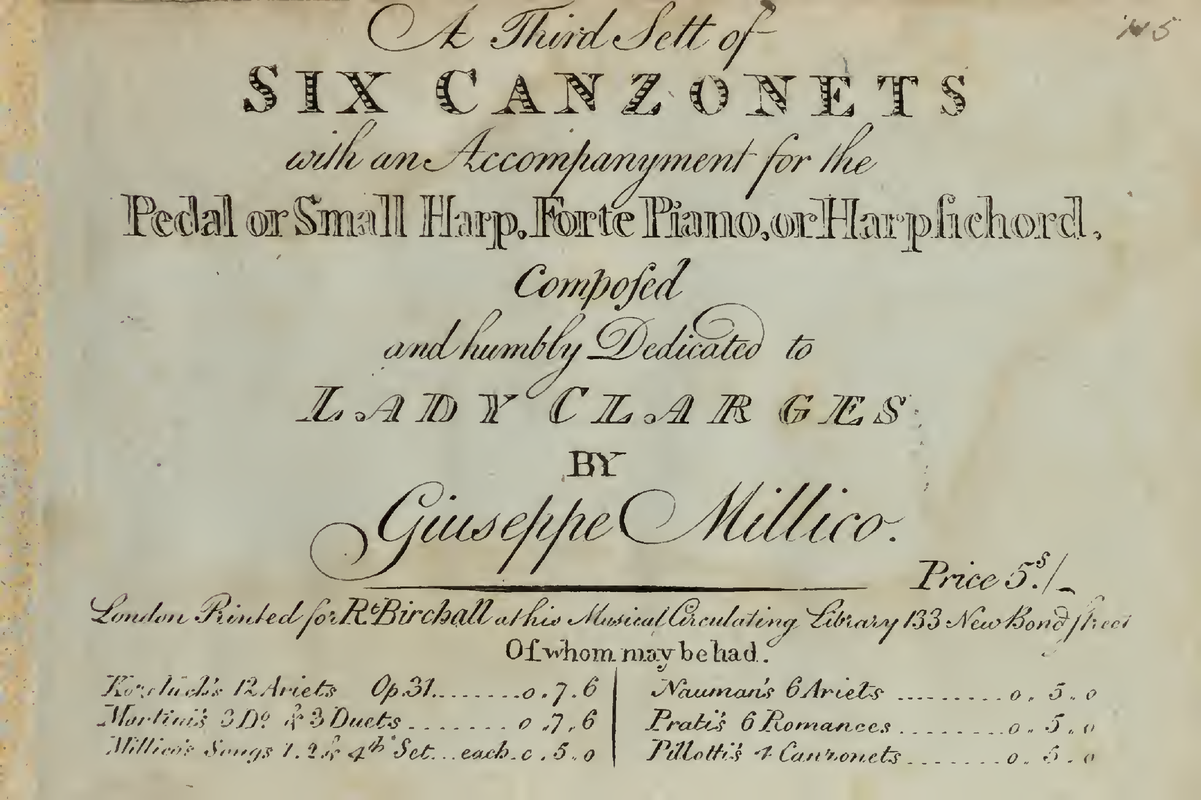 A Third Sett of
SIX CANZONETS
with an Accompanyment for the
Pedal or Small Harp, Forte Piano, or Harpsichord,
Composed
and humbly Dedicated to
LADY CLARGES
BY
Giuseppe Millico.
Price 5.s/-
London Printed for Rt. Birchall at his Musical Circulating Library 133 New Bond street
Of whom may be had.
Kozeluch's 12 Ariets Op 31........0.7.6
Martini's 3 Do. & 3 Duets.........0.7.6
Millico's Songs 1. 2 & 4th Set...each.0.5.0
Nauman's 6 Ariets ..........0.5.0
Prati's 6 Romances..........0.5.0
Pillotti's 4 Canzonets........0.5.0